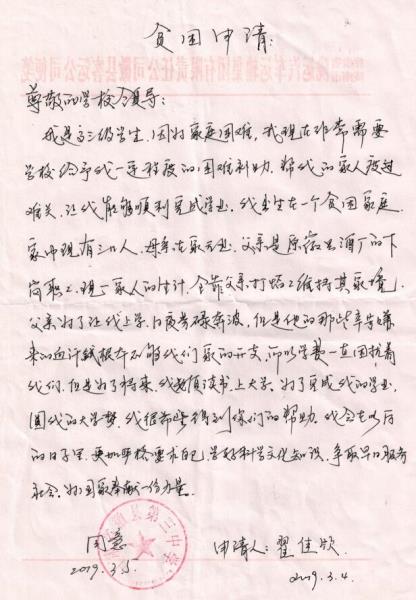 贫困申请:
尊敬的学校领导:
我是高三级学生,因为家庭困难,我现在非常需要
学校给予我一定程度的困难补助,帮我的家人度过
难关,让我能够顺利完成学业。我出生在一个贫困家庭,
家中现有三口人,母亲在家无业,父亲是原徽县酒厂的下
岗职工,现一家人的生计,全靠父亲打临工维持其家境,
父亲为了让我上学,日夜劳碌奔波,但是他的那些辛苦赚
来的血汗钱根本不够我们家的开支,所以学费一直困扰着
我们,但是为了将来,我必须读书,上大学,为了完成我的学业,
圆我的大学梦,我很希望得到你们的帮助,我会在以后
的日子里,更加严格要求自己,学好科学文化知识,争取早日服务
社会,为国家奉献一份力量。
同意
申请人:翟佳欣
2019.3.5.
2019.3.4.
县第三中学